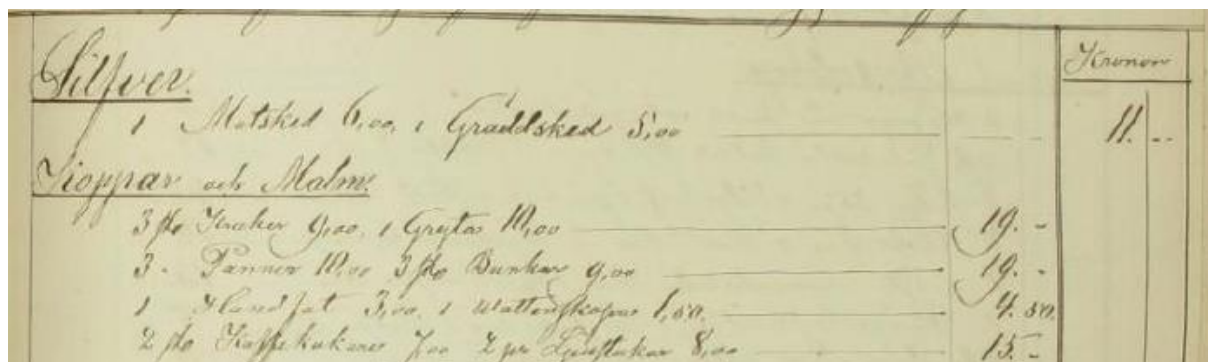 Kronor
Silfver.
1 Matsked 6,00, 1 Gräddsked 5,00 11. --
Koppar och Malm.
3 st Krukor 9,00, 1 Gryta 10,00 19. -
3 - Pannor 10,00 3 st Bunkar 9,00 19. -
1 Handfat 3,00, 1 Wattenskopa 1,50. 4. 50.
2 st Kaffekokare 7,00 2 pr Ljusstakar 8,00 15. -